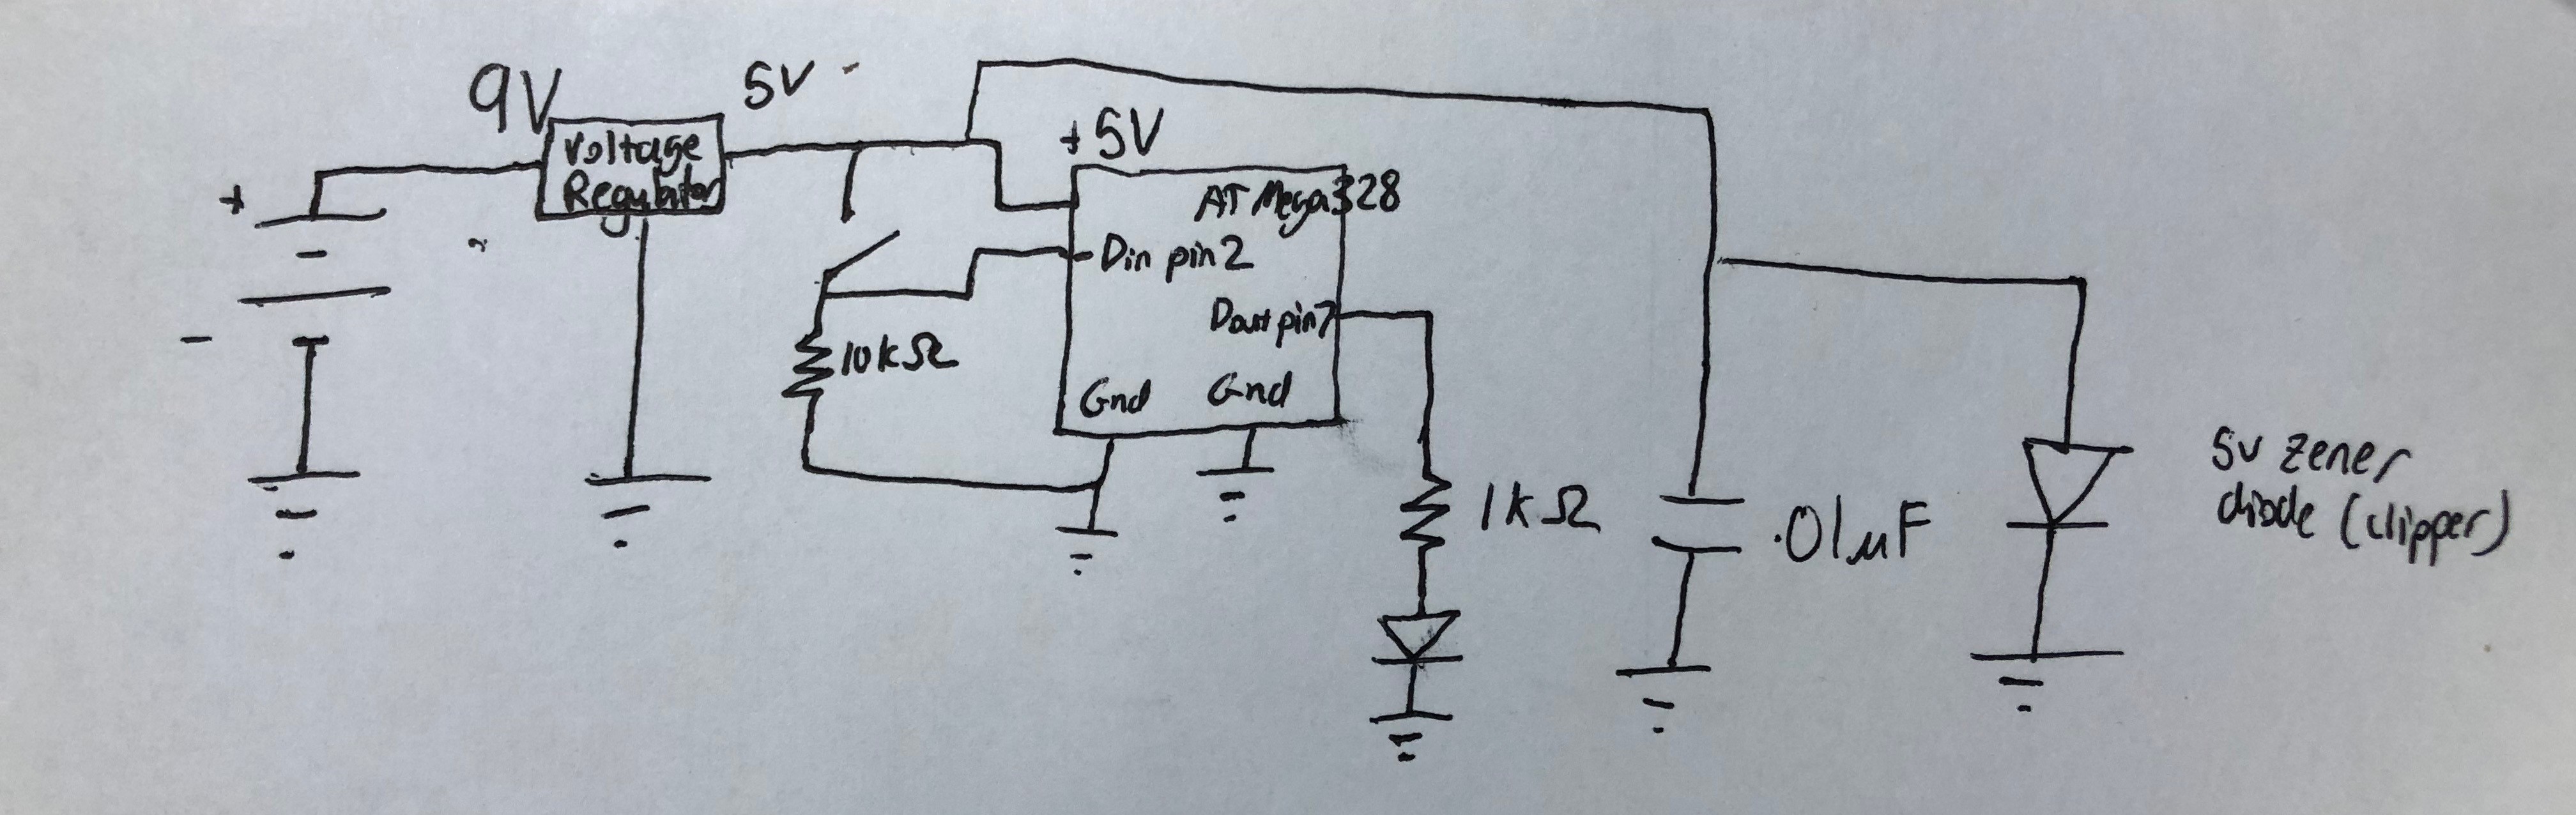 9V
5V
Voltage
Regulator
+5V
+
-
ATMega328
Din pin2
Dout pin7
10kΩ
Gnd Gnd
1kΩ
.01µF
5v zener
diode (clipper)